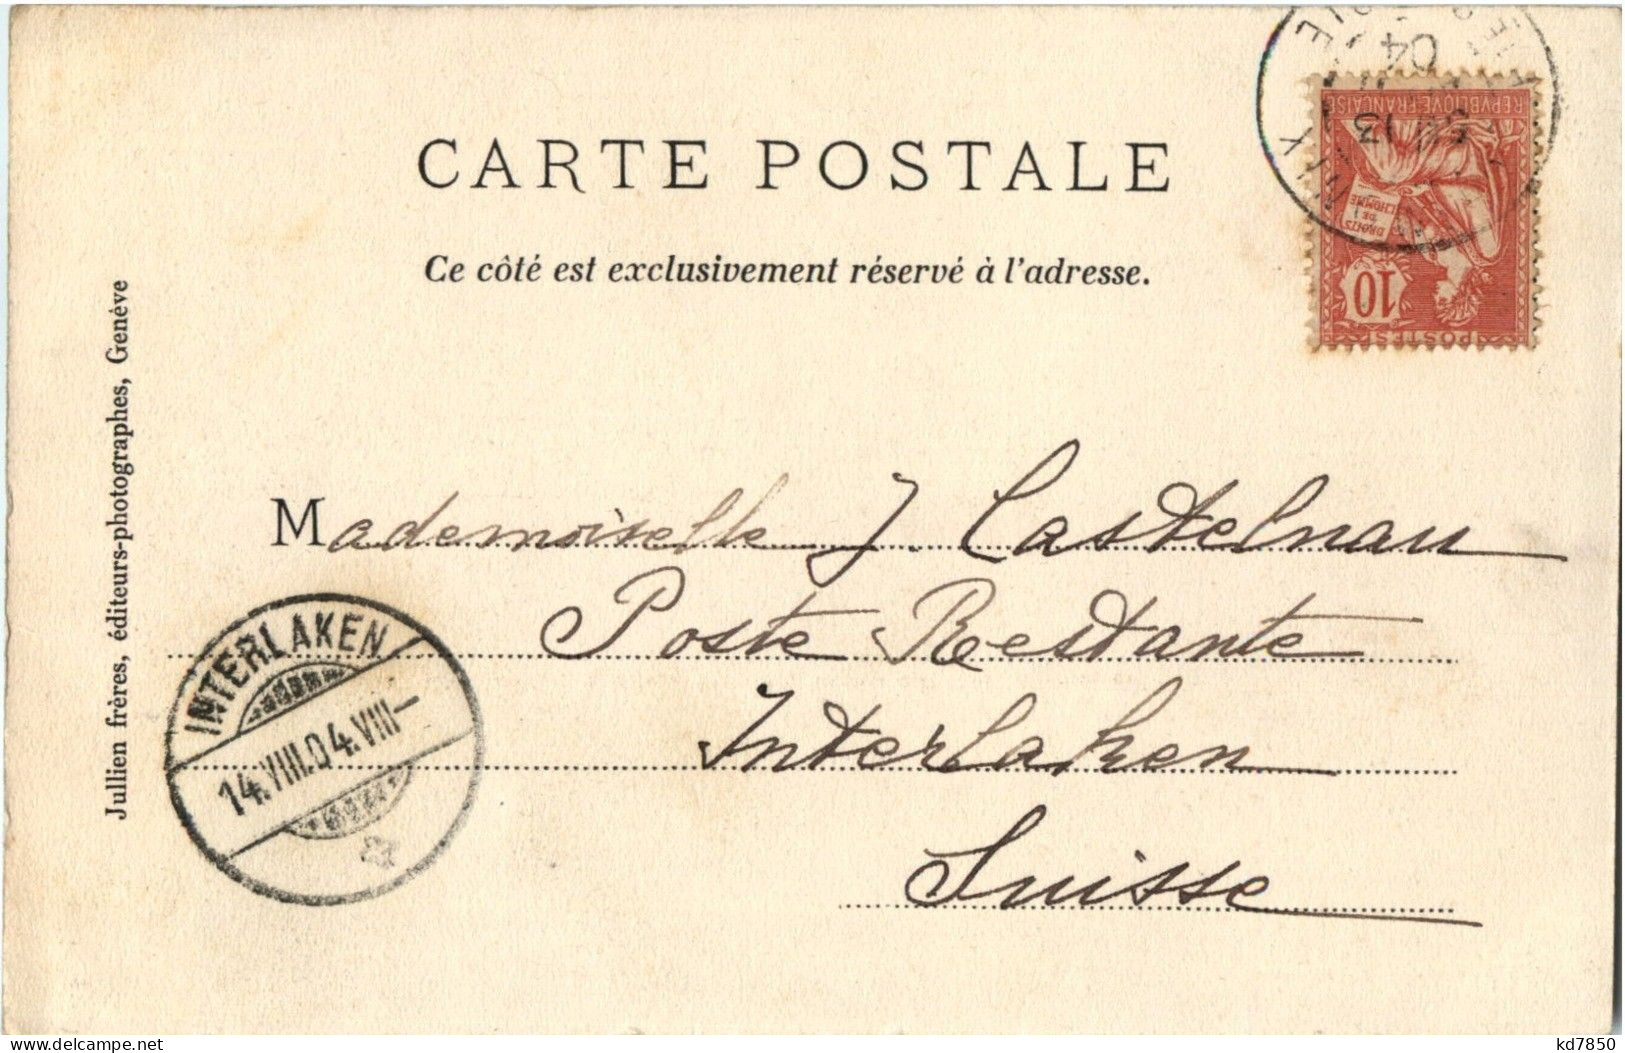 CARTE POSTALE
Ce côté est exclusivement réservé à l'adresse.
Jullien frères, éditeurs-photographes, Genève
REPVBLIQVE FRANÇAISE
DROITS
DE
L'HOMME
10
POSTES
13
04
Mademoiselle J. Castelnau
Poste Restante
Interlaken
Suisse
INTERLAKEN
14.VIII.04.VIII–
kd7850